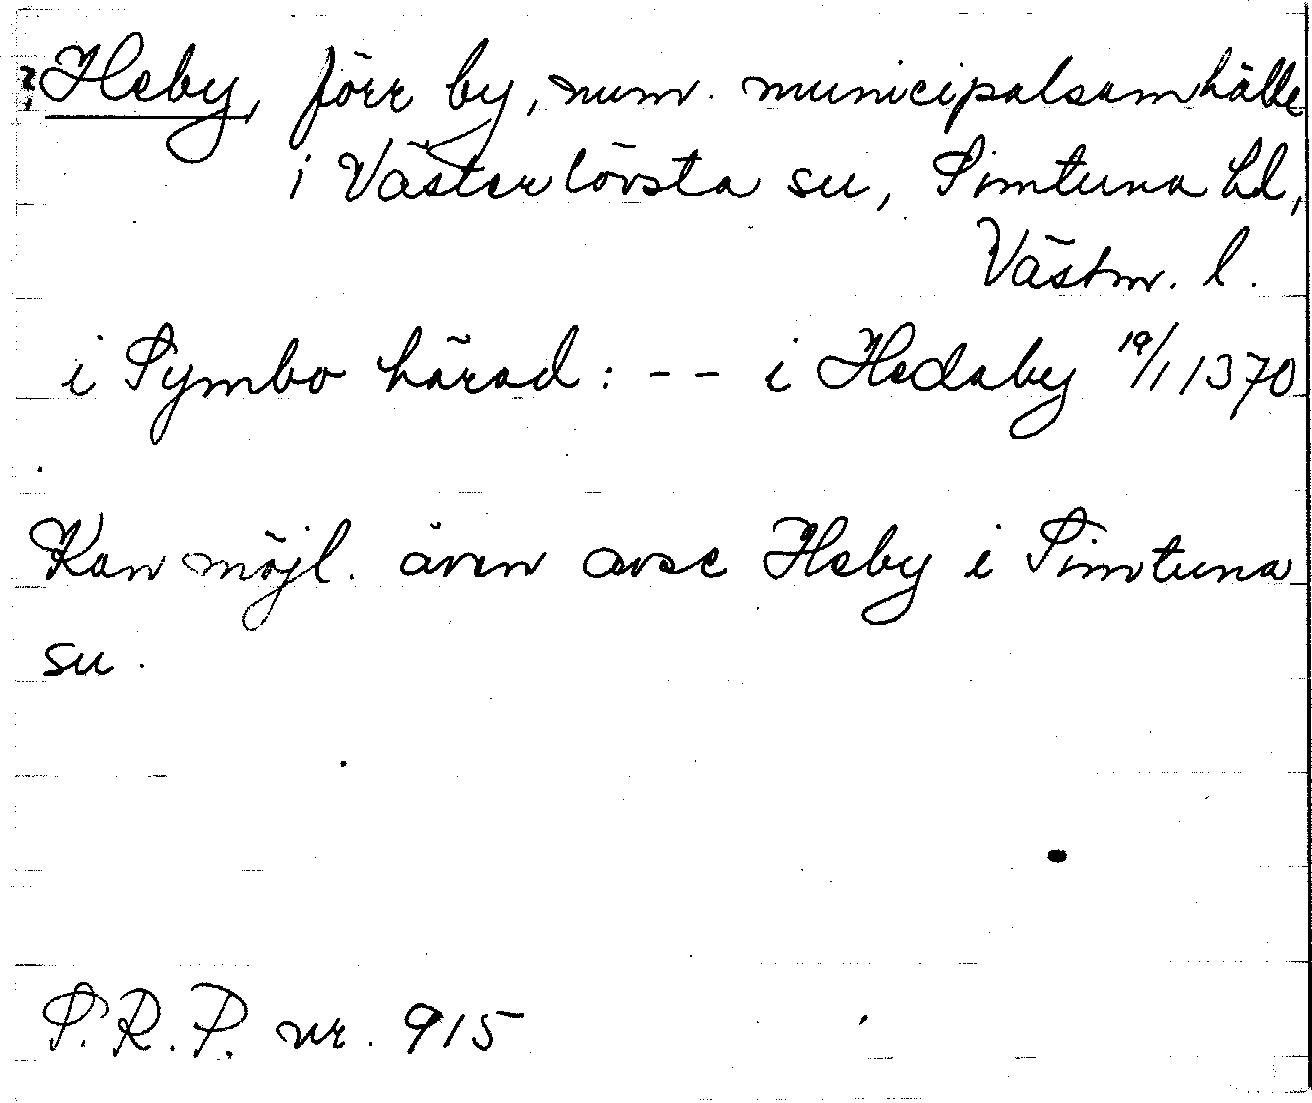 ? Heby, förr by, num. municipalsamhälle
i Västerlövsta sn, Simtuna hd,
Västm. l.
i Symbo härad: -- i Hedaby 19/1 1370
Kan möjl. även avse Heby i Simtuna
sn.
S.R.P. nr. 915